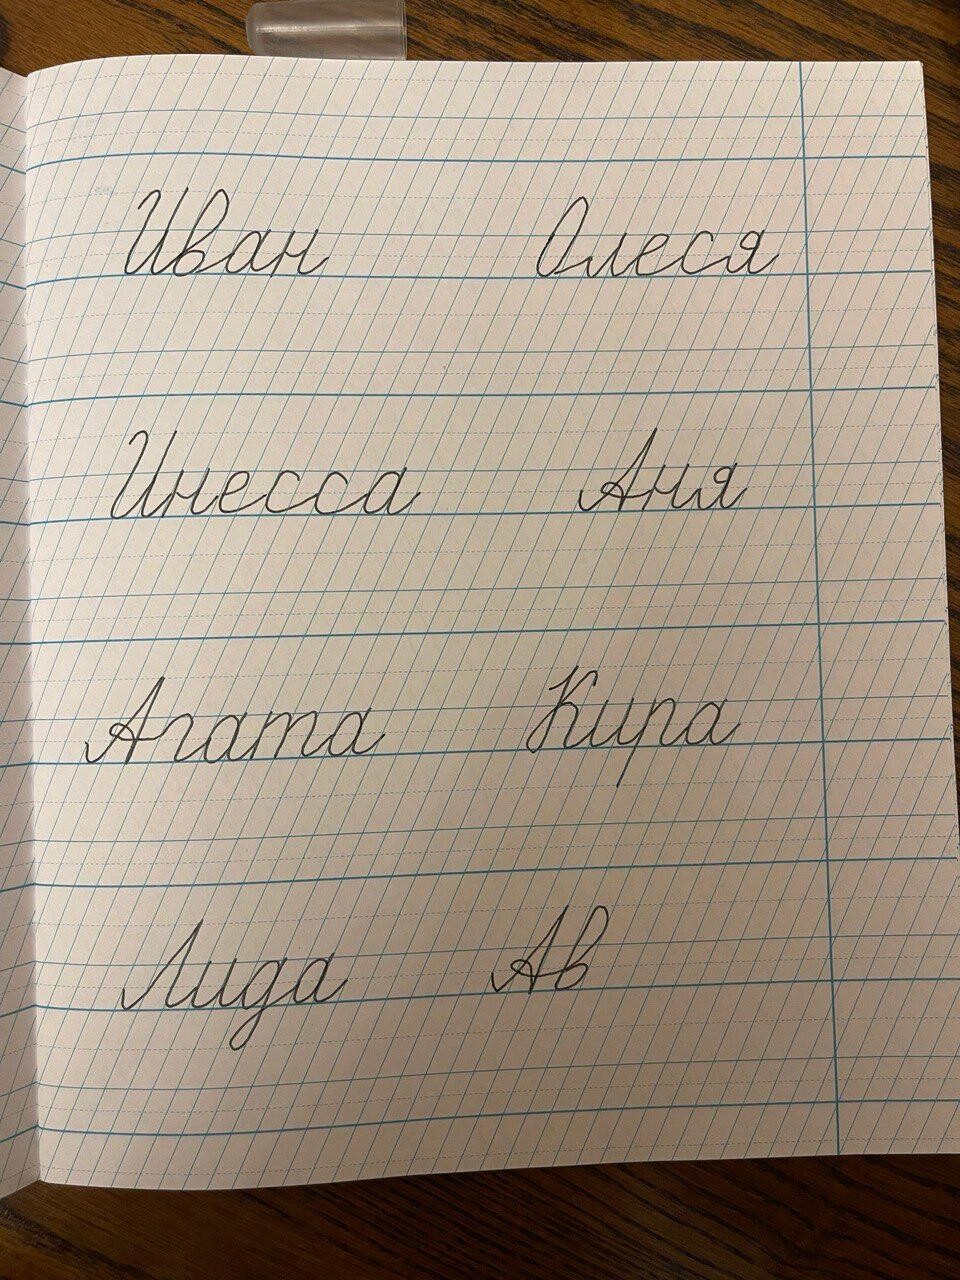 Иван Олеся
Инесса Аня
Агата Кира
Лида Ав